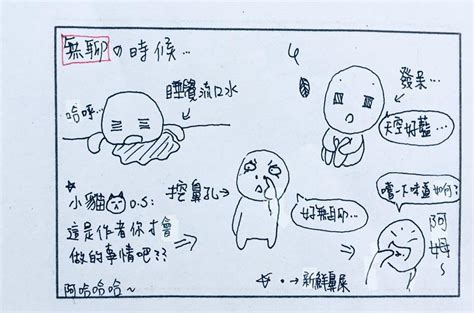 無聊の時候…
哈呼…
睡覺流口水
發呆…
天空好藍…
挖鼻孔
好無聊…
嚐一下味道如何?
阿姆~
小貓 O.S:
這是作者你才會
做的事情吧??
阿哈哈哈~
新鮮鼻屎